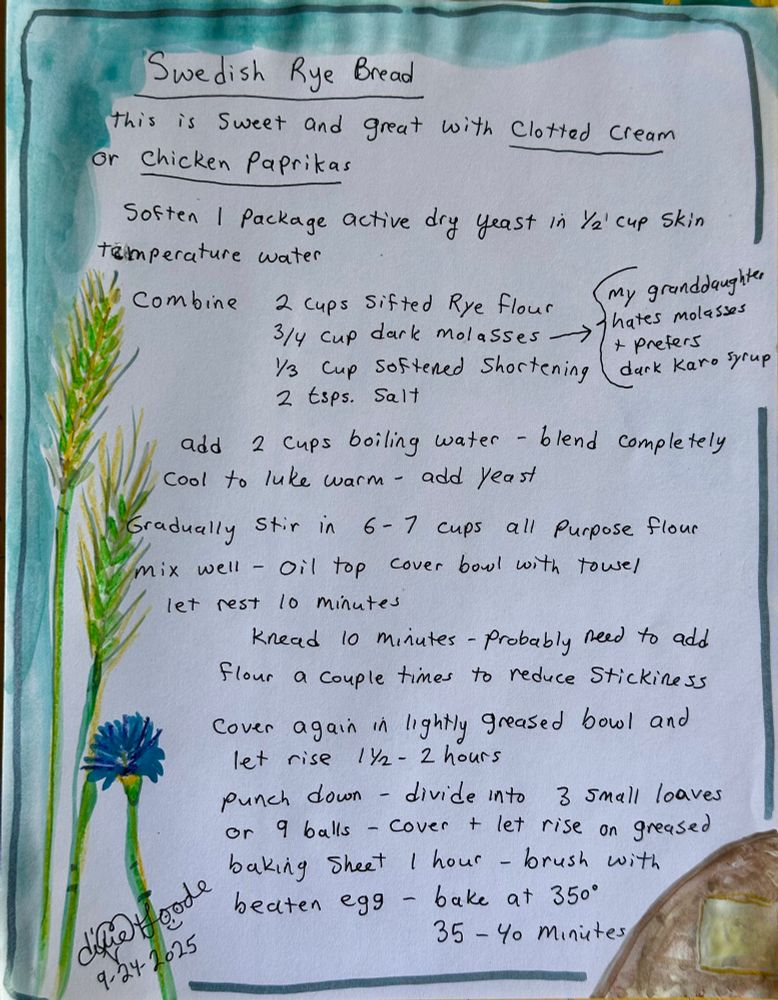 Swedish Rye Bread
this is Sweet and great with Clotted Cream
or Chicken Paprikas
Soften 1 Package active dry yeast in 1/2 cup skin
temperature water
Combine 2 cups Sifted Rye flour
3/4 cup dark molasses →
1/3 cup Softened Shortening
2 tsps. Salt
my granddaughter
hates molasses
+ prefers
dark Karo syrup
add 2 cups boiling water - blend completely
Cool to luke warm - add yeast
Gradually Stir in 6-7 cups all Purpose flour
mix well - Oil top cover bowl with towel
let rest 10 minutes
Knead 10 minutes - Probably need to add
flour a couple times to reduce Stickiness
Cover again in lightly greased bowl and
let rise 1 1/2 - 2 hours
Punch down - divide into 3 small loaves
or 9 balls - cover + let rise on greased
baking Sheet 1 hour - brush with
beaten egg - bake at 350°
35 - 40 minutes
9-24-2025